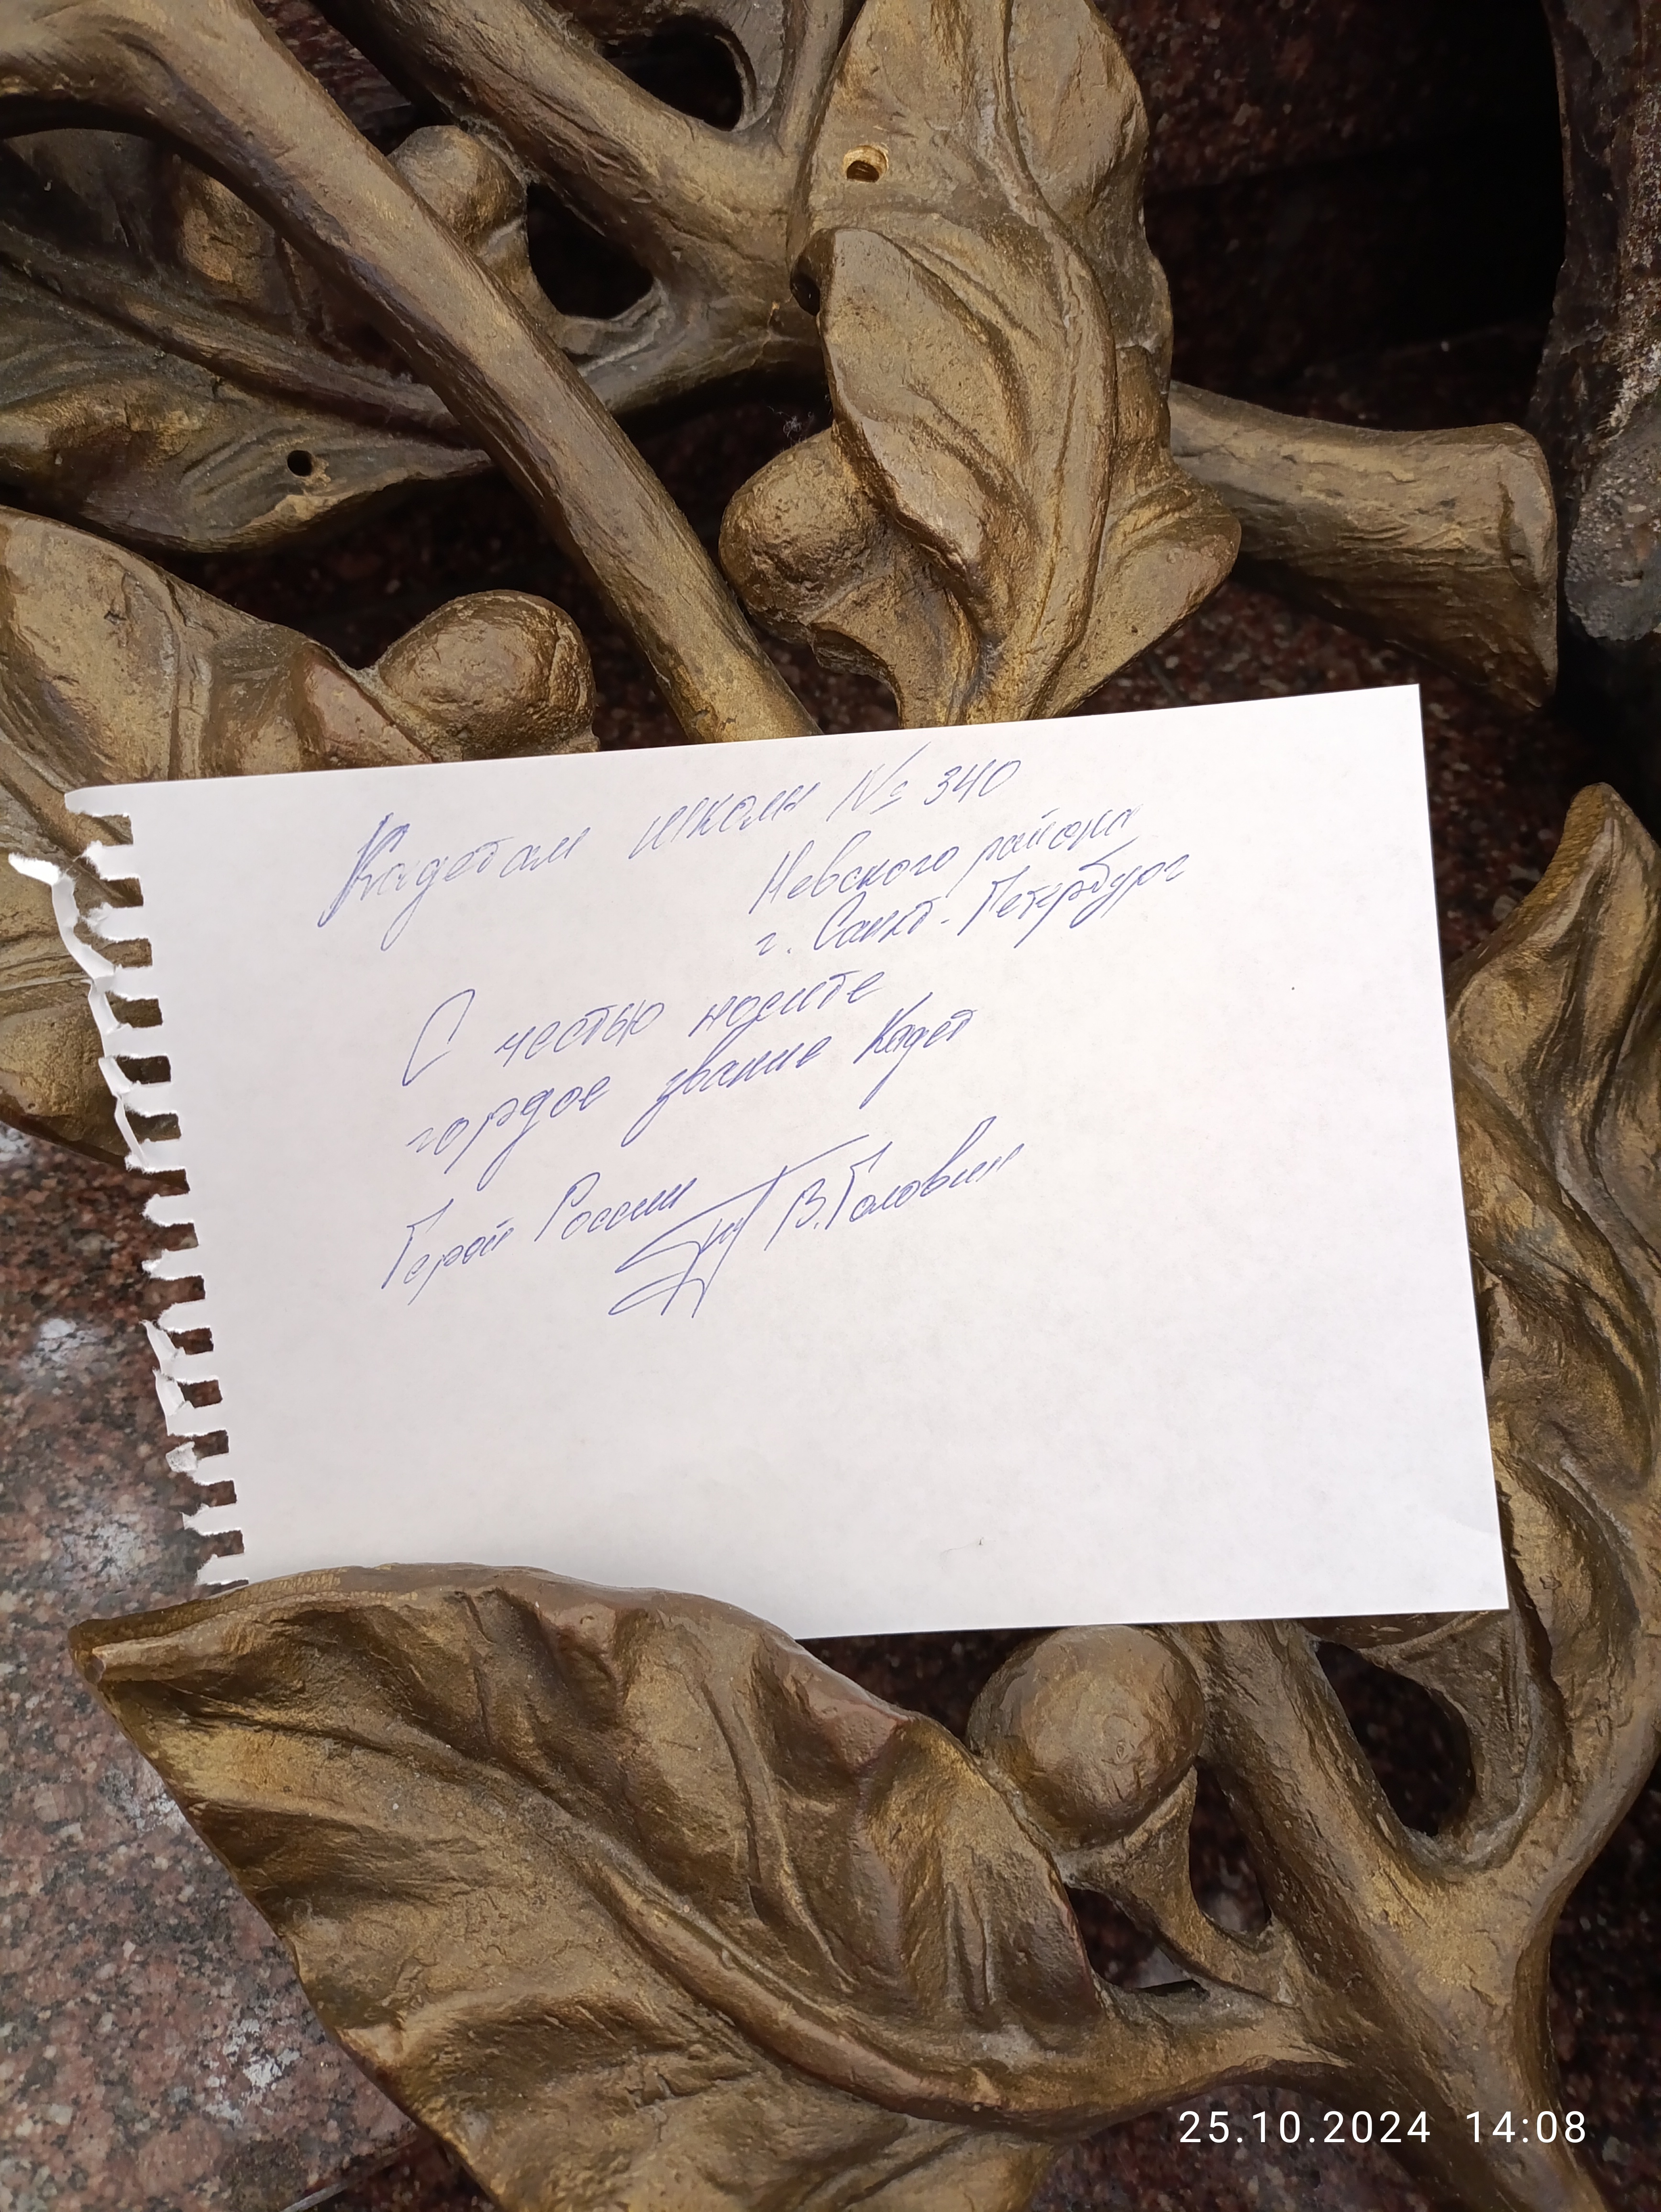 Кадетам школы № 340
Невского района
г. Санкт-Петербург
С честью носите
гордое звание Кадет
Герой России В. Головин
25.10.2024 14:08